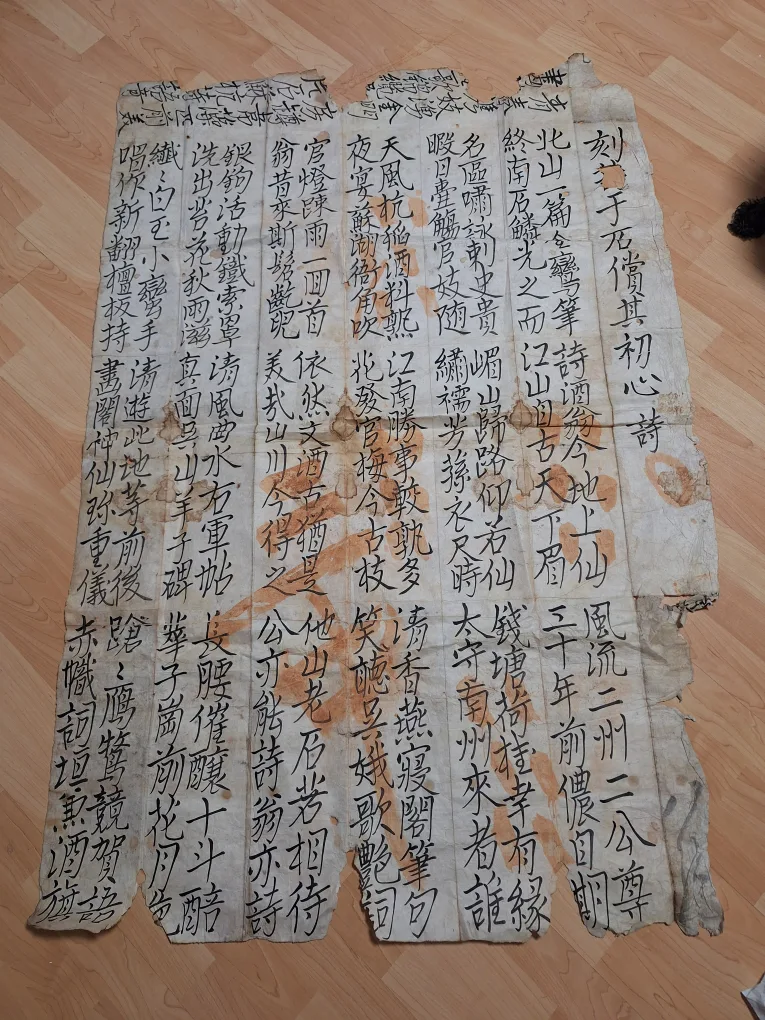 刻于石償其初心詩
北山一篇金鸞筆
終南石鱗光之而
詩酒翁今地上仙
江山自古天下眉
風流二州二公尊
三十年前儂自期
名區嘯詠刺史貴
暇日壺觴官妓隨
嵋山歸路仰若仙
繡襦芳蓀衣尺時
錢塘荷桂幸有緣
太守南州來者誰
天風杭稻酒料熟
夜宴蘇湖角吹
江南勝事較孰多
兆發官梅今古枝
清香燕寢閣筆句
笑聽吳娥歌艶詞
官燈踈雨一回首
翁昔來斯髫齔兒
依然文酒古猶是
美哉山川今得之
他山老石若相待
公亦能詩翁亦詩
銀鉤活動鐵索罩
洗出苔花秋雨滋
清風曲水右軍帖
真面吳山羊子碑
長腰催釀十斗醅
華子崗前花月色
纖〻白玉小蠻手
唱作新翻檀板持
清遊此地等前後
畫閣神仙珎重儀
蹌〻鴈鶩競賀語
赤幟詞垣兼酒旗